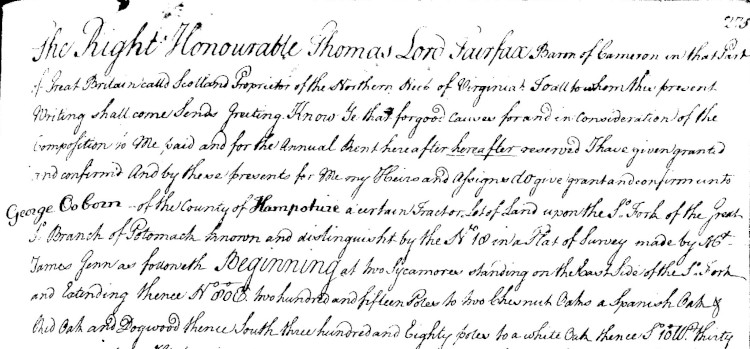 275
The Right Honourable Thomas Lord Fairfax Baron of Cameron in that Part
of Great Britain called Scotland Proprietor of the Northern Neck of Virginia To all to whom this present
Writing shall come Sends Greeting Know Ye that for good Causes for and in Consideration of the
Composition to Me paid and for the Annual Rent hereafter hereafter reserved I have given granted
and confirmed And by these presents for Me my Heirs and Assigns do give grant and confirm unto
George Osborn of the County of Hampshire a certain Tract or Lot of Land upon the So. Fork of the Great
So. Branch of Potomack known and distinguisht by the No. 18 in a Plat of Survey made by Mr.
James Genn as followeth Beginning at two Sycamores standing on the East Side of the So. Fork
and Extending thence No. 80 E. two hundred and fifteen Poles to two Chesnut Oaks a Spanish Oak &
Red Oak and Dogwood thence South three hundred and Eighty poles to a white Oak thence So. Wt. thirty